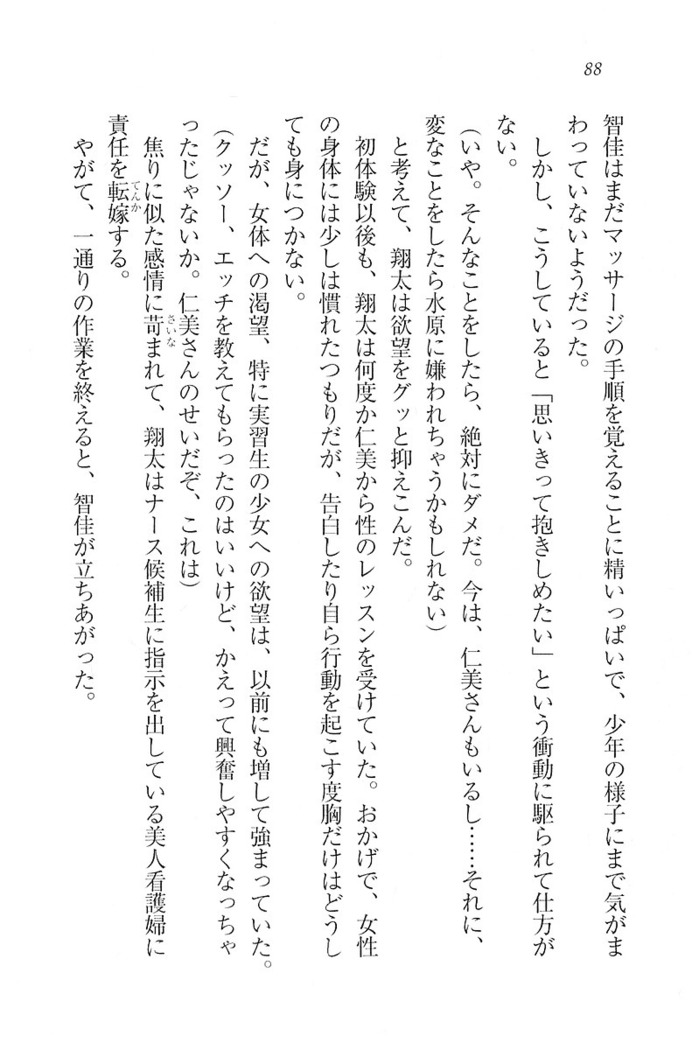 88
智佳はまだマッサージの手順を覚えることに精いっぱいで、少年の様子にまで気がま
わっていないようだった。
しかし、こうしていると「思いきって抱きしめたい」という衝動に駆られて仕方が
ない。
(いや。そんなことをしたら、絶対にダメだ。今は、仁美さんもいるし……それに、
変なことをしたら水原に嫌われちゃうかもしれない)
と考えて、翔太は欲望をグッと抑えこんだ。
初体験以後も、翔太は何度か仁美から性のレッスンを受けていた。おかげで、女性
の身体には少しは慣れたつもりだが、告白したり自ら行動を起こす度胸だけはどうし
ても身につかない。
だが、女体への渇望、特に実習生の少女への欲望は、以前にも増して強まっていた。
(クッソー、エッチを教えてもらったのはいいけど、かえって興奮しやすくなっちゃ
ったじゃないか。仁美さんのせいだぞ、これは)
焦りに似た感情に苛まれて、翔太はナース候補生に指示を出している美人看護婦に
さいな
責任を転嫁する。
てんか
やがて、一通りの作業を終えると、智佳が立ちあがった。